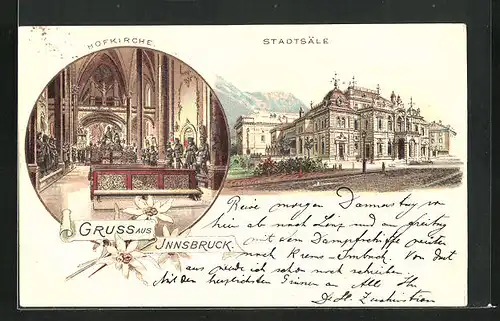 HOFKIRCHE.
STADTSÄLE.
GRUSS AUS
INNSBRUCK.
Reise morgen Donnerstag von
hier ab nach Linz und am Freitag
mit dem Dampfschiffe weiter
nach Krems-. Von dort
aus werde ich schon noch schreiben.
Mit den herzlichsten Grüssen an Alle Ihr
Dr.